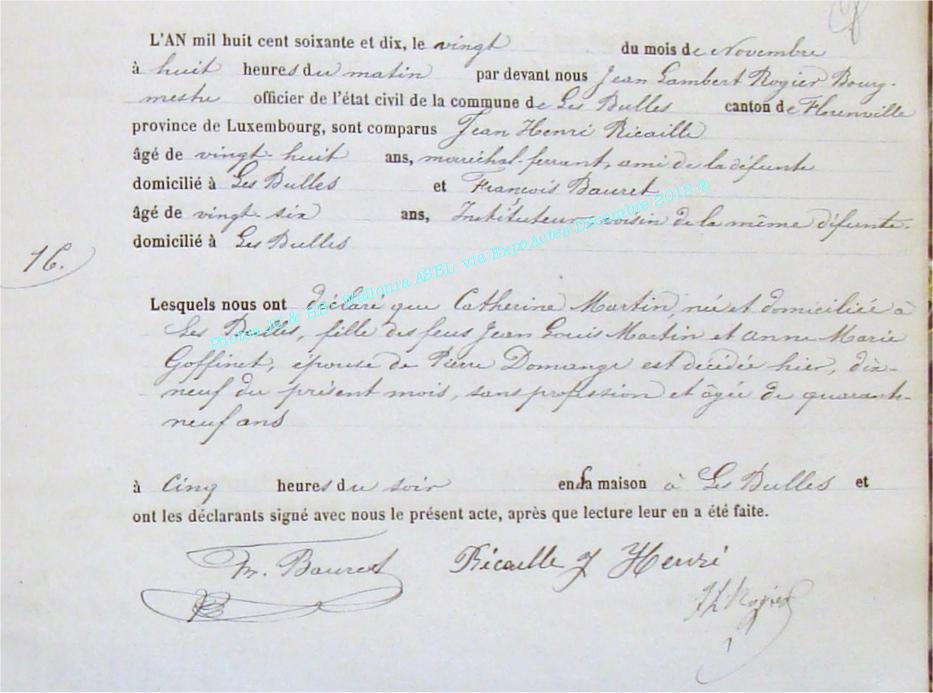 L'AN mil huit cent soixante et dix, le vingt du mois de Novembre
à huit heures du matin par devant nous Jean Lambert Rogier Bourg-
mestre officier de l'état civil de la commune de Les Bulles canton de Florenville
province de Luxembourg, sont comparus Jean Henri Ricaille
âgé de vingt-huit ans, maréchal-ferrant, ami de la défunte
domicilié à Les Bulles et François Bauret
âgé de vingt-six ans, Instituteur, voisin de la même défunte.
domicilié à Les Bulles
16.
Lesquels nous ont déclaré que Catherine Martin, née et domiciliée à
Les Bulles, fille des feus Jean Louis Martin et Anne Marie
Goffinet, épouse de Pierre Domange est décédée hier, dix-
neuf du présent mois, sans profession et âgée de quarante-
neuf ans
à cinq heures du soir en sa maison à Les Bulles et
ont les déclarants signé avec nous le présent acte, après que lecture leur en a été faite.
Fr. Bauret Ricaille J Henri
JLRogier
via ExpoActes Décembre 2012 ®
Wallonia ASBL